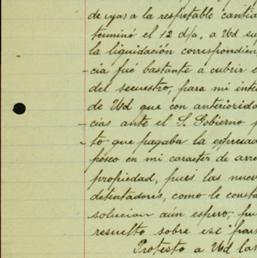 de iyas a la respetable cantia
terminó el 12 dpo, a Ud su
la liquidación correspondien
cia fué bastante a cubrir e
del secuestro, para mi inte
de Ud que con anteriorida
cias ante el S. Gobierno p
to que pagaba la espresada
poseo en mi carácter de arre
propiedad, pues las nuev
detentadores, como le consta
solucion aun espero, fue
resuelto sobre ese par
Protesto a Ud las